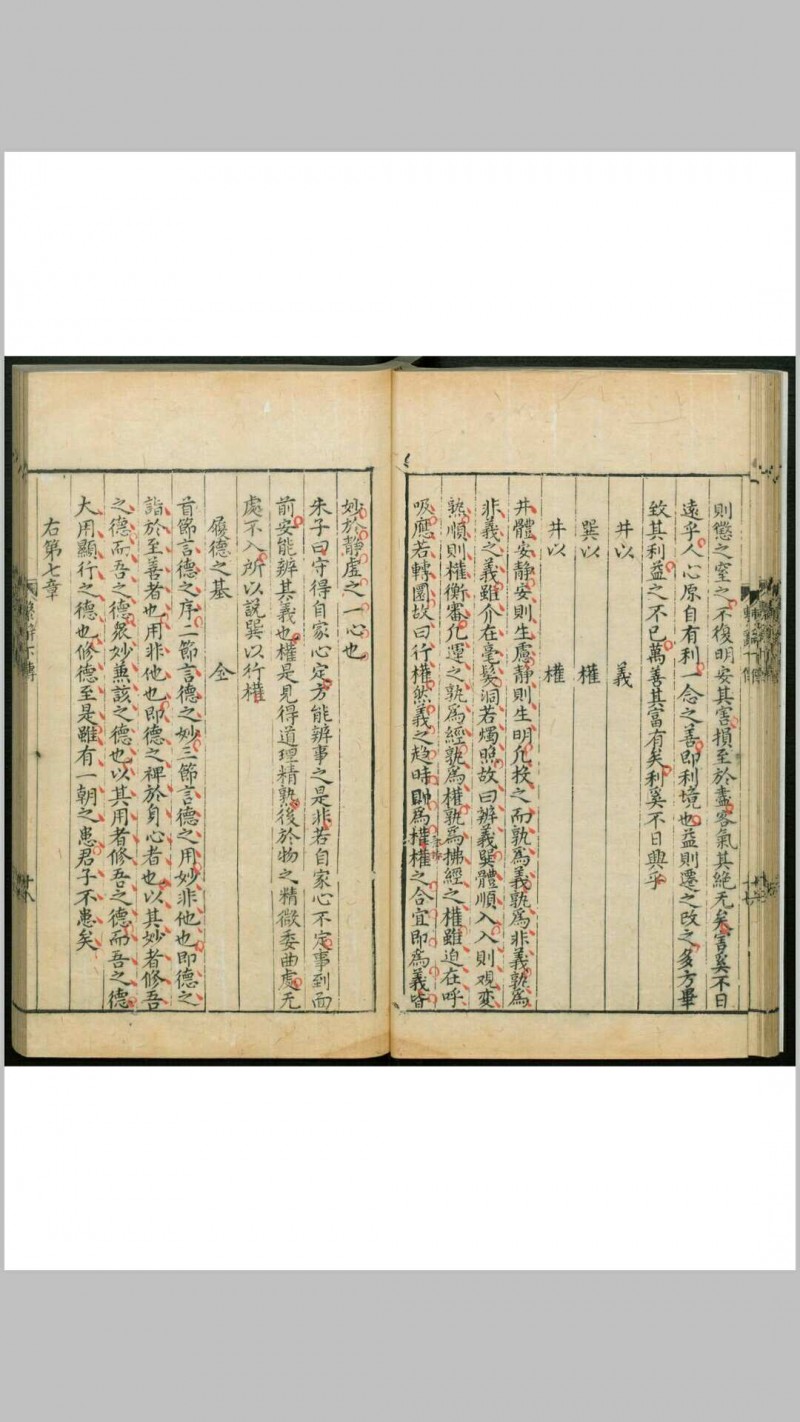 則懲之窒之不復明安其害損至於盡客氣其絕无矣害奚不日
遠乎人心原自有利一念之善即利境也益則遷之改之多方畢
致其利益之不已萬善其富有矣利奚不日興乎
井以　義
巽以　權
井以　權
井體安静安則生慮静則生明凡投之而孰為義孰為非義孰為
非義之義雖介在毫髮洞若燭照故曰辨義巽體順入入則观変
熟順則權衡審凡運之孰為經孰為權孰為拂經之權雖迫在呼
吸應若轉圜故曰行權然義之趋時即為權權之合宜即為義皆
妙於靜虛之一心也
朱子曰守得自家心定方能辨事之是非若自家心不定事到面
前安能辨其義也權是見得道理精熟後於物之精微委曲處无
處不入所以說巽以行權
履德之基　全
首節言德之序二節言德之妙三節言德之用妙非他也即德之
詣於至善者也用非他也即德之裨於身心者也以其妙者修吾
之德而吾之德衆妙兼該之德也以其用者修吾之德而吾之德
大用顯行之德也修德至是雖有一朝之患君子不患矣
右第七章
繫辭下傳